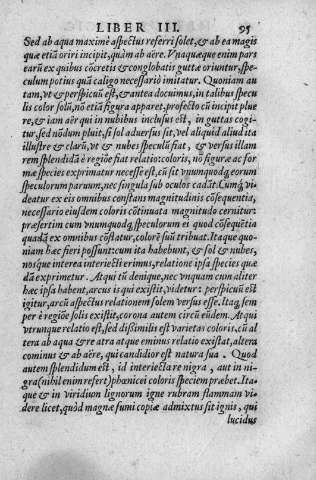 LIBER III. 95
Sed ab aqua maximè aspectus referri solet, & ab ea magis
quæ etiã oriri incipit, quàm ab aëre. Vnaquæque enim pars
earũ ex quibus cõcretis & cõnglobatis guttæ oriuntur, spe-
culum potius quã caligo necessariò imitatur. Quoniam au
tam, vt & perspicuũ est, & antea docuimus, in talibus specu
lis color solũ, nõ etiã figura apparet, profectò cũ incipit plue
re, & iam aër qui in nubibus inclusus est, in guttas cogi-
tur, sed nõdum pluit, si sol aduersus sit, vel aliquid aliud ita
illustre & clarũ, vt & nubes speculũ fiat, & versus illam
rem splendidã è regiõe fiat relatio: coloris, nõ figuræ ac for
mæ species exprimatur necesse est, cũ sit vnumquodq; eorum
speculorum paruum, nec singula sub oculos cadãt. Cumq́; vi
deatur ex eis omnibus constans magnitudinis cõsequentia,
necessariò eiusdem coloris cõtinuata magnitudo cernitur:
præsertim cum vnumquodq; speculorum ex quo ea cõsequẽtia
quadã ex omnibus cõflatur, colorẽ suũ tribuat. Itaque quo-
niam hæc fieri possunt: cum ita habebunt, & sol & nubes,
nosque interea interiecti erimus, relatione ipsa species quæ
dã exprimetur. Atqui tũ denique, nec vnquam cum aliter
hæc ipsa habent, arcus is qui existit, videtur: perspicuũ est
igitur, arcũ aspectus relationem solem versus esse. Itaq; sem
per è regiõe solis existit, corona autem circũ eũdem. Atqui
vtrunque relatio est, sed dissimilis est varietas coloris, cũ al
tera ab aqua & re atra atque eminus relatio existat, altera
cominus & ab aëre, qui candidior est natura sua. Quod
autem splendidum est, id interiecta re nigra, aut in ni-
gra (nihil enim refert) phœnicei coloris speciem præbet. Ita-
que & in viridium lignorum igne rubram flammam vi-
dere licet, quòd magnæ fumi copiæ admixtus sit ignis, qui
lucidus